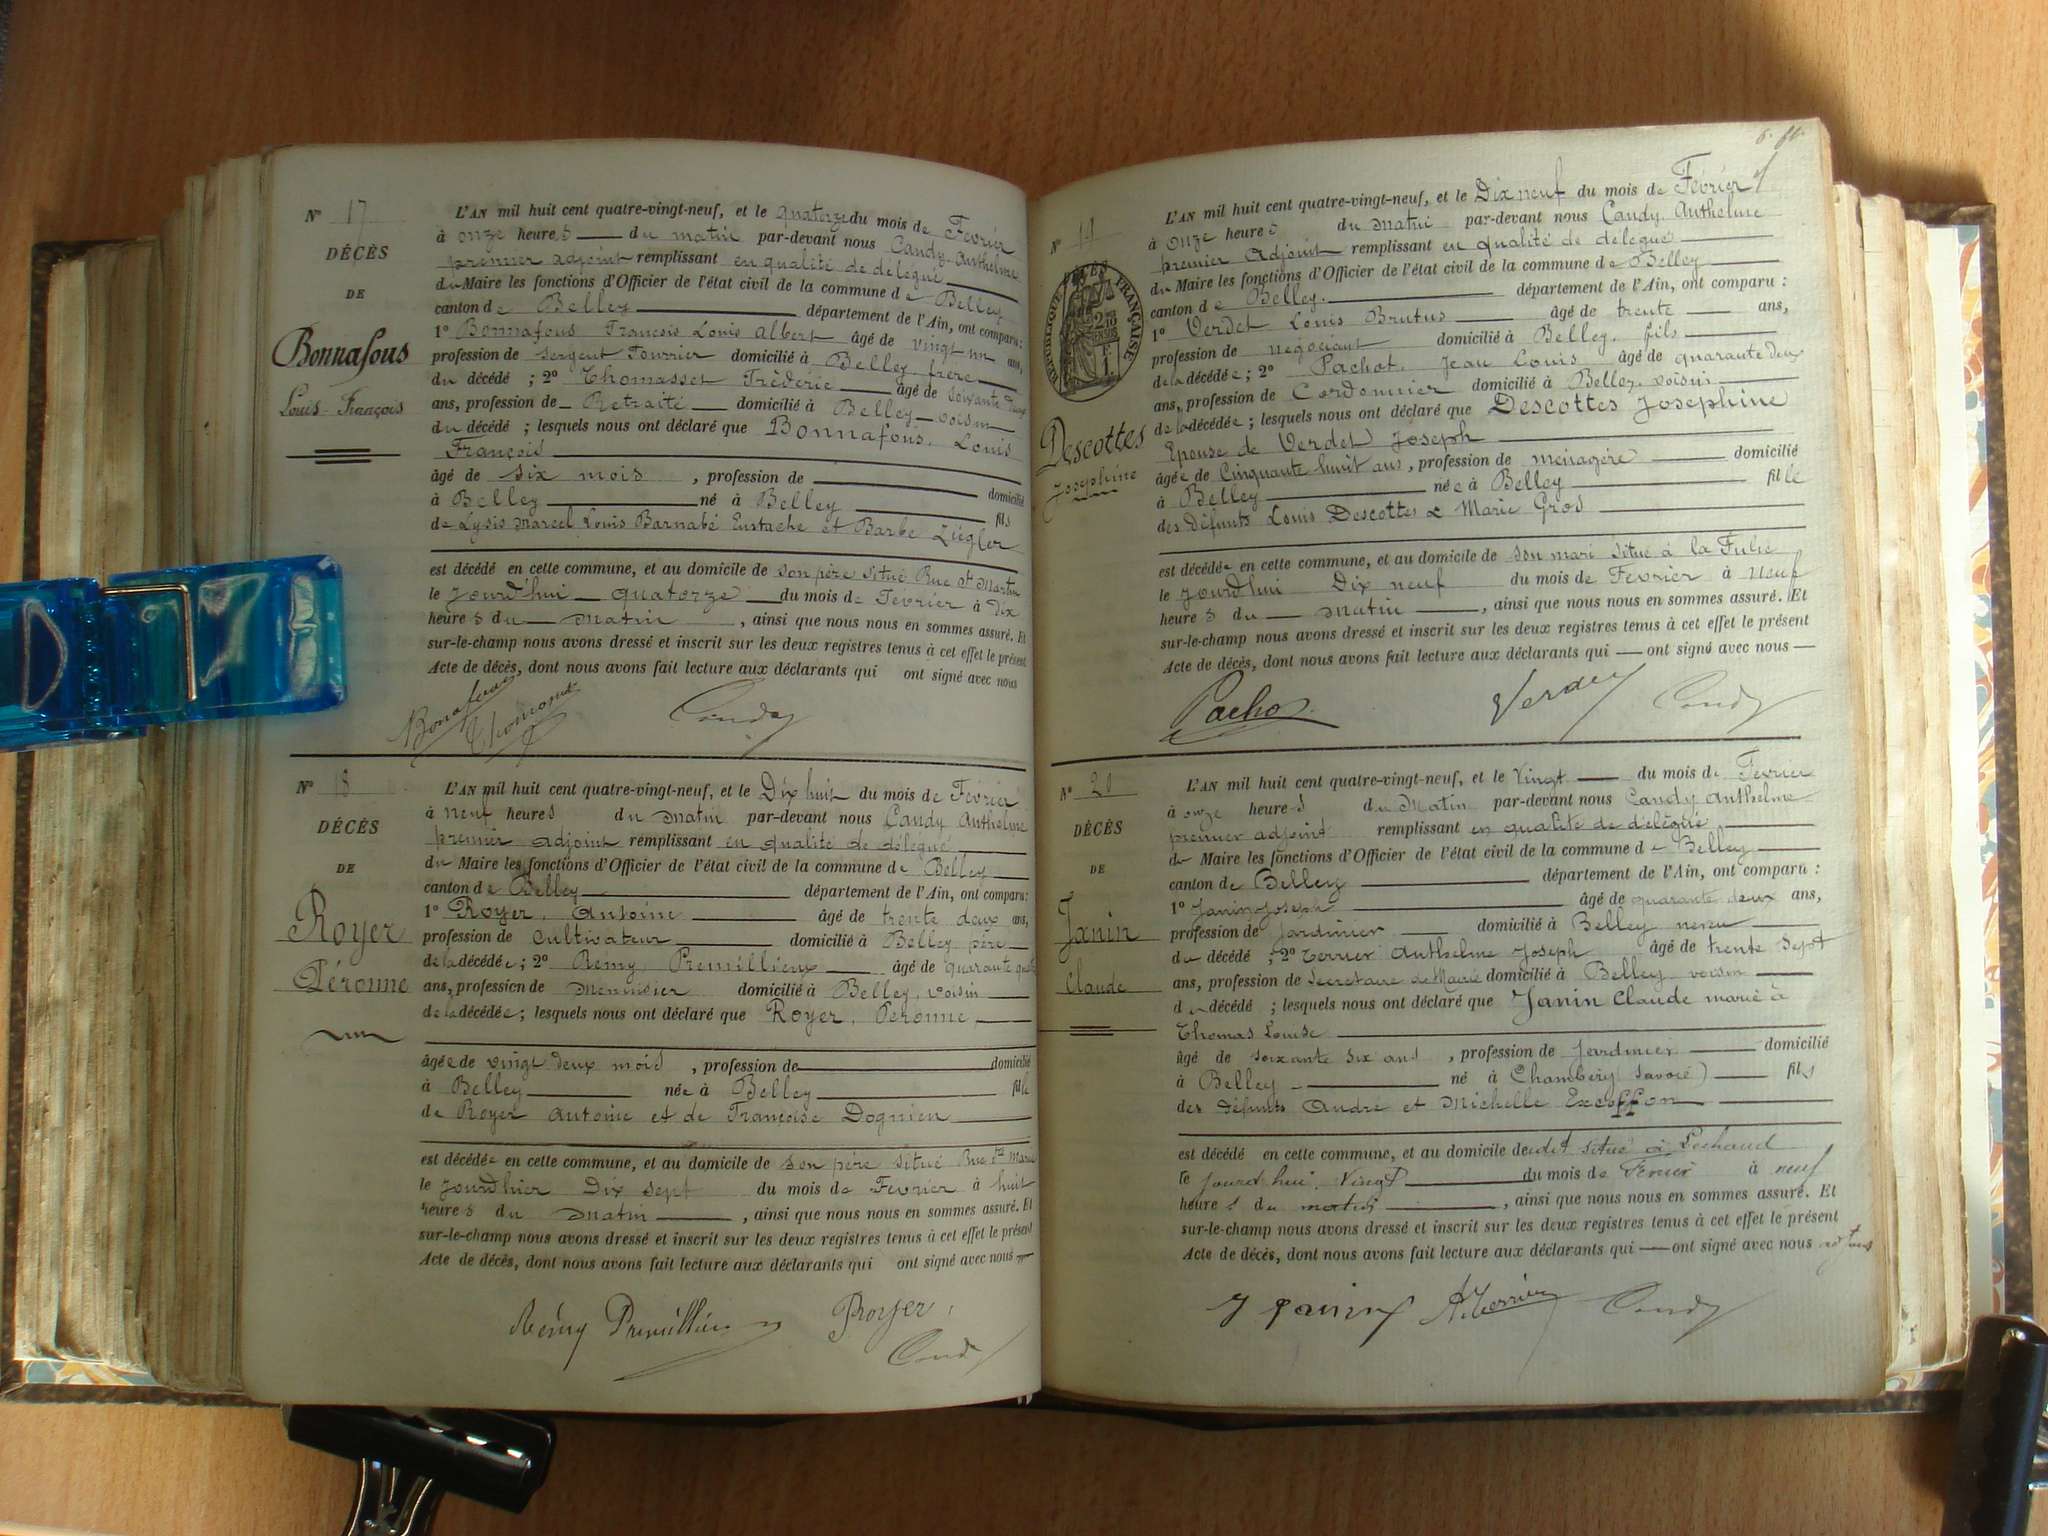 N° 17
DÉCÈS
DE
Bonnafous
Louis François
L'AN mil huit cent quatre-vingt-neuf, et le quatorze du mois de Fevrier
à onze heures du matin par-devant nous Candy Anthelme
premier adjoint remplissant en qualité de délégué
du Maire les fonctions d'Officier de l'état civil de la commune de Belley
canton de Belley département de l'Ain, ont comparu :
1° Bonnafous François Louis Albert âgé de vingt un ans,
profession de sergent Fourrier domicilié à Belley, frère
du décédé ; 2° Thomasset Frédéric âgé de soixante
ans, profession de Retraité domicilié à Belley voisin
du décédé ; lesquels nous ont déclaré que Bonnafous, Louis
François
âgé de six mois , profession de domicilié
à Belley né à Belley fils
de Lysis Marcel Louis Barnabé Eustache et Barbe Ziégler
est décédé en cette commune, et au domicile de son père situé Rue St Martin
le jourd'hui quatorze du mois de Fevrier à dix
heures du matin , ainsi que nous nous en sommes assuré. Et
sur-le-champ nous avons dressé et inscrit sur les deux registres tenus à cet effet le présent
Acte de décès, dont nous avons fait lecture aux déclarants qui ont signé avec nous
Bonnafous Candy
N° 18
DÉCÈS
DE
Royer
Péronne
L'AN mil huit cent quatre-vingt-neuf, et le Dix huit du mois de Fevrier
à neuf heures du matin par-devant nous Candy Anthelme
premier adjoint remplissant en qualité de délégué
du Maire les fonctions d'Officier de l'état civil de la commune de Belley
canton de Belley département de l'Ain, ont comparu :
1° Royer, Antoine âgé de trente deux ans,
profession de Cultivateur domicilié à Belley père
de la décédée ; 2° Remy Premillieux âgé de quarante quatre
ans, profession de Menuisier domicilié à Belley, voisin
de la décédée ; lesquels nous ont déclaré que Royer, Péronne
âgée de vingt deux mois , profession de domicilié
à Belley née à Belley fille
de Royer Antoine et de Françoise Dognien
est décédée en cette commune, et au domicile de son père situé Rue Ste Marie
le jourd'hier Dix sept du mois de Fevrier à huit
heures du matin , ainsi que nous nous en sommes assuré. Et
sur-le-champ nous avons dressé et inscrit sur les deux registres tenus à cet effet le présent
Acte de décès, dont nous avons fait lecture aux déclarants qui ont signé avec nous
Rémy Premillieux Royer
Candy
N°
DÉCÈS
RÉPUBLIQUE FRANÇAISE
Descottes
Josephine
L'AN mil huit cent quatre-vingt-neuf, et le Dix neuf du mois de Fevrier
à onze heures du matin par-devant nous Candy Anthelme
premier Adjoint remplissant en qualité de délégué
du Maire les fonctions d'Officier de l'état civil de la commune de Belley
canton de Belley département de l'Ain, ont comparu :
1° Verdet Louis Brutus âgé de trente ans,
profession de négociant domicilié à Belley, fils
de la décédée ; 2° Pachot, Jean Louis âgé de quarante deux
ans, profession de Cordonnier domicilié à Belley, voisin
de la décédée ; lesquels nous ont déclaré que Descottes Josephine
Epouse de Verdet Joseph
âgée de Cinquante huit ans, profession de ménagère domicilié
à Belley née à Belley fille
des défunts Louis Descottes & Marie Gros
est décédée en cette commune, et au domicile de son mari situé à la
le jourd'hui Dix neuf du mois de Fevrier à neuf
heures du matin , ainsi que nous nous en sommes assuré. Et
sur-le-champ nous avons dressé et inscrit sur les deux registres tenus à cet effet le présent
Acte de décès, dont nous avons fait lecture aux déclarants qui ont signé avec nous
Pachot Verdet Candy
N° 20
DÉCÈS
DE
Janin
Claude
L'AN mil huit cent quatre-vingt-neuf, et le vingt du mois de Fevrier
à onze heures du Matin par-devant nous Candy Anthelme
premier adjoint remplissant en qualité de délégué
du Maire les fonctions d'Officier de l'état civil de la commune de Belley
canton de Belley département de l'Ain, ont comparu :
1° Janin Joseph âgé de quarante deux ans,
profession de Jardinier domicilié à Belley neveu
du décédé ; 2° Terrier Anthelme Joseph âgé de trente sept
ans, profession de Secretaire de Mairie domicilié à Belley voisin
du décédé ; lesquels nous ont déclaré que Janin Claude marié à
Thomas Louise
âgé de soixante six ans , profession de Jardinier domicilié
à Belley né à Chambéry (Savoie) fils
des défunts André et Michelle Excoffon
est décédé en cette commune, et au domicile dudit situé à
le jourd'hui Vingt du mois de Fevrier à neuf
heures du matin , ainsi que nous nous en sommes assuré. Et
sur-le-champ nous avons dressé et inscrit sur les deux registres tenus à cet effet le présent
Acte de décès, dont nous avons fait lecture aux déclarants qui ont signé avec nous
J Janin A. Terrier Candy